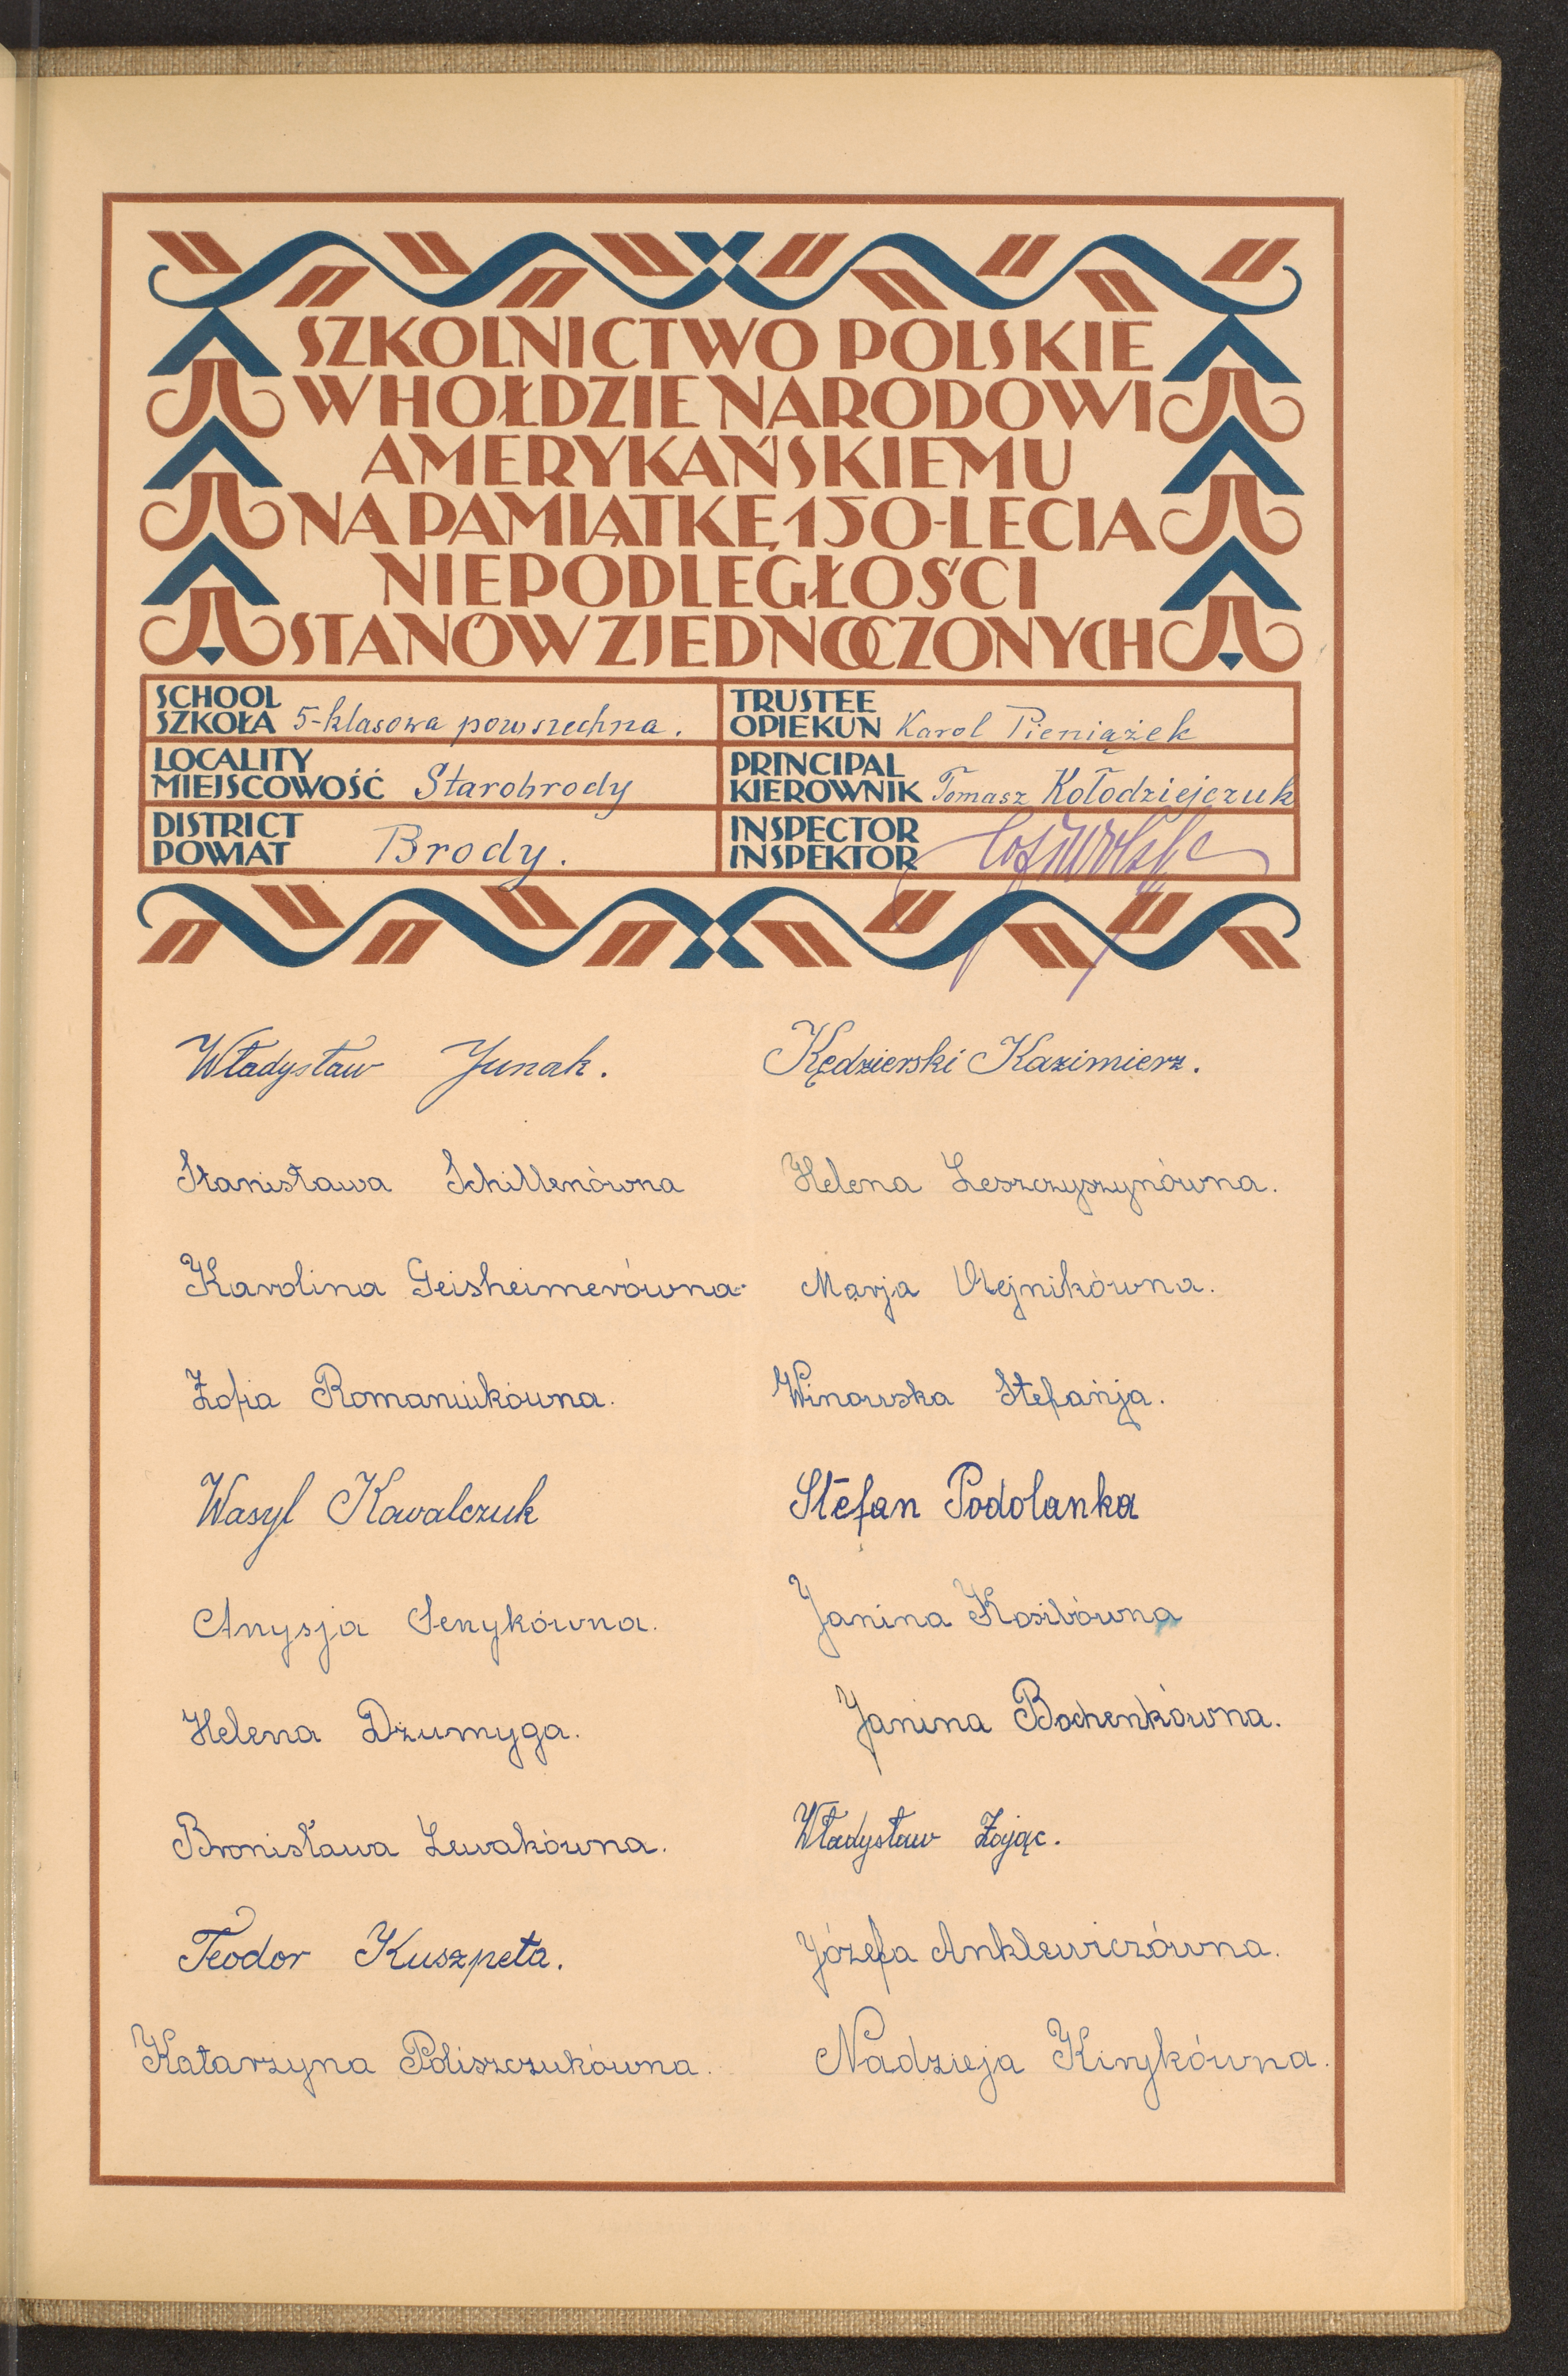 SZKOLNICTWO POLSKIE
W HOŁDZIE NARODOWI
AMERYKAŃSKIEMU
NA PAMIĄTKĘ 150-LECIA
NIEPODLEGŁOŚCI
STANÓW ZJEDNOCZONYCH
SCHOOL
SZKOŁA 5-klasowa powszechna.
TRUSTEE
OPIEKUN Karol Pieniążek
LOCALITY
MIEJSCOWOŚĆ Starobrody
PRINCIPAL
KIEROWNIK Tomasz Kołodziejczuk
DISTRICT
POWIAT Brody.
INSPECTOR
INSPEKTOR
Władysław Junak.
Kędzierski Kazimierz.
Stanisława Schillenówna
Helena Leszczyszynówna.
Karolina Geisheimerówna
Marja Olejnikówna.
Zofia Romaniukówna.
Winowska Stefańja.
Wasyl Kowalczuk
Stefan Podolanka
Anysja Senykówna.
Janina Kosibówna
Helena Dżumyga.
Janina Bochenkówna.
Bronisława Lewakówna.
Władysław Zając.
Teodor Kuszpeta.
Józefa Anklewiczówna.
Katarzyna Poliszczukówna.
Nadzieja Kinykówna.